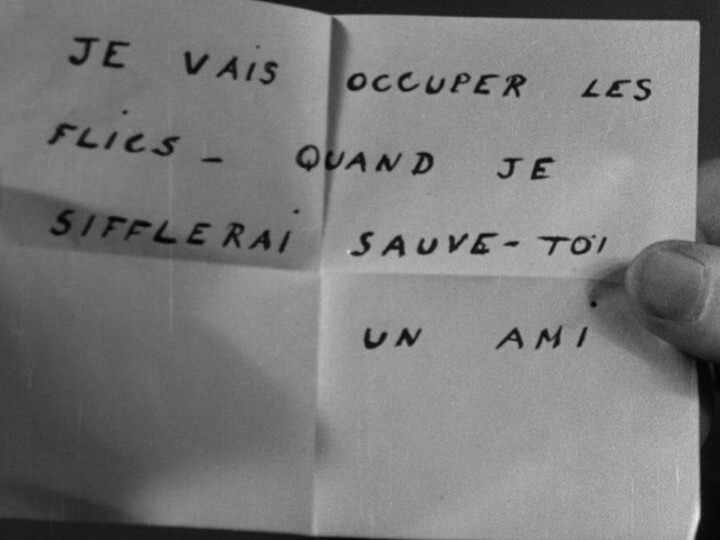 JE VAIS OCCUPER LES
FLICS - QUAND JE
SIFFLERAI SAUVE-TOI
UN AMI